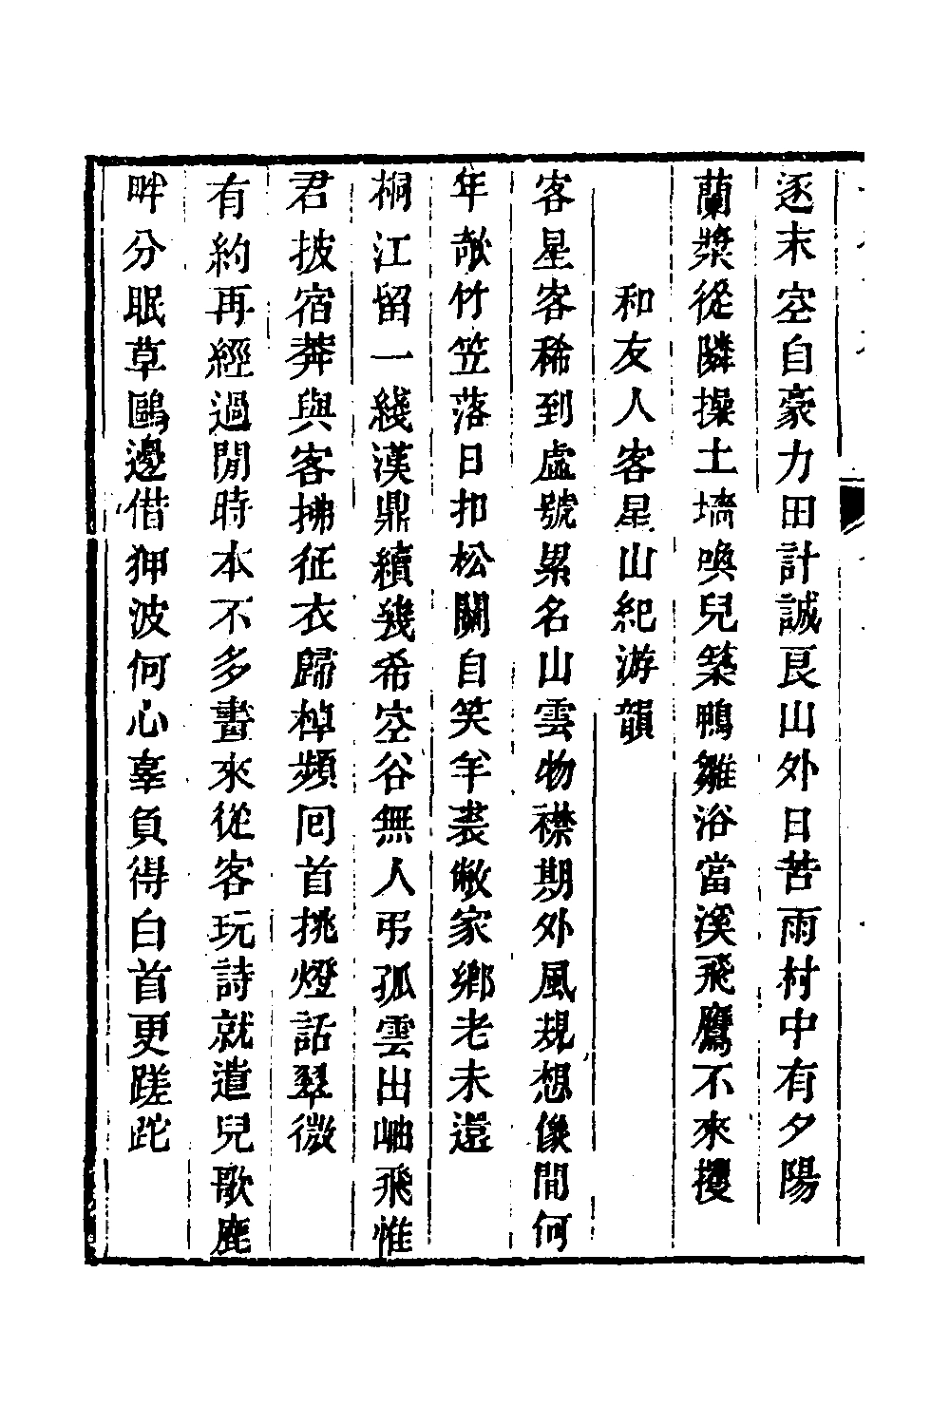 逐末空自豪力田計誠良山外日苦雨村中有夕陽
蘭槳從隣操土墻喚兒築鴨雛浴當溪飛鷹不來攫
和友人客星山紀游韻
客星客稀到虛號累名山雲物襟期外風規想像間何
年欹竹笠落日扣松關自笑羊裘敝家鄉老未還
桐江留一綫漢鼎續幾希空谷無人弔孤雲出岫飛惟
君披宿莽與客拂征衣歸棹頻囘首挑燈話翠微
有約再經過閒時本不多畵來從客玩詩就遣兒歌鹿
畔分眠草鷗邊借狎波何心辜負得白首更蹉跎